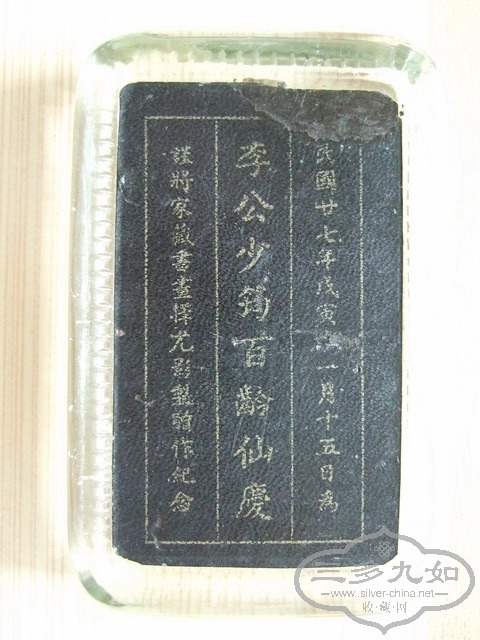 民國廿七年戊寅一月十五日為
李公少百齡仙慶
謹將家藏書畫擇尤影製贈作紀念
三多九如
www.silver-china.net
收·藏·网